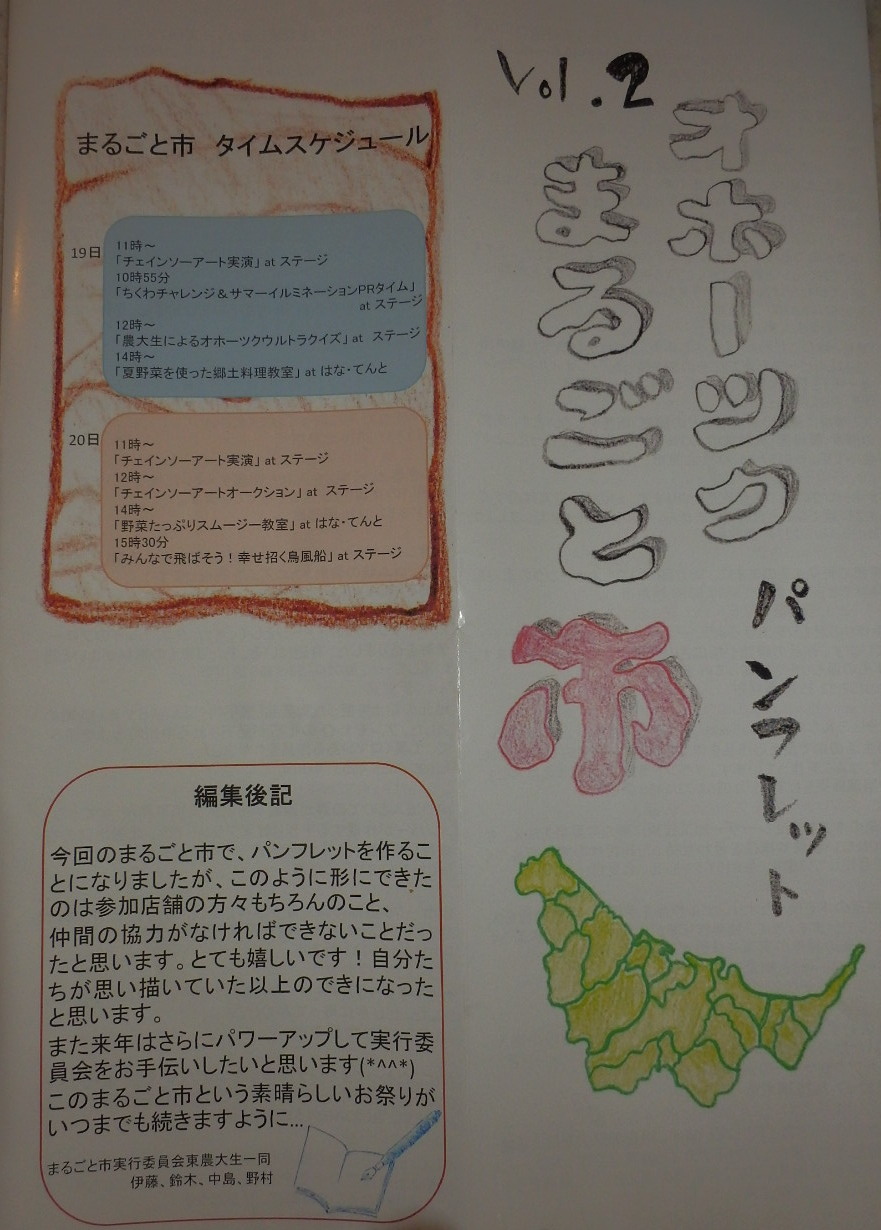 Vol.2
オホーツク
まるごと
市
パンフレット
まるごと市 タイムスケジュール
19日
11時～
「チェインソーアート実演」at ステージ
10時55分
「ちくわチャレンジ＆サマーイルミネーションPRタイム」
at ステージ
12時～
「農大生によるオホーツクウルトラクイズ」at ステージ
14時～
「夏野菜を使った郷土料理教室」at はな・てんと
20日
11時～
「チェインソーアート実演」at ステージ
12時～
「チェインソーアートオークション」at ステージ
14時～
「野菜たっぷりスムージー教室」at はな・てんと
15時30分
「みんなで飛ばそう！幸せ招く鳥風船」at ステージ
編集後記
今回のまるごと市で、パンフレットを作るこ
とになりましたが、このように形にできた
のは参加店舗の方々もちろんのこと、
仲間の協力がなければできないことだっ
たと思います。とても嬉しいです！自分た
ちが思い描いていた以上のできになった
と思います。
また来年はさらにパワーアップして実行委
員会をお手伝いしたいと思います(*^^*)
このまるごと市という素晴らしいお祭りが
いつまでも続きますように...
まるごと市実行委員会東農大生一同
伊藤、鈴木、中島、野村